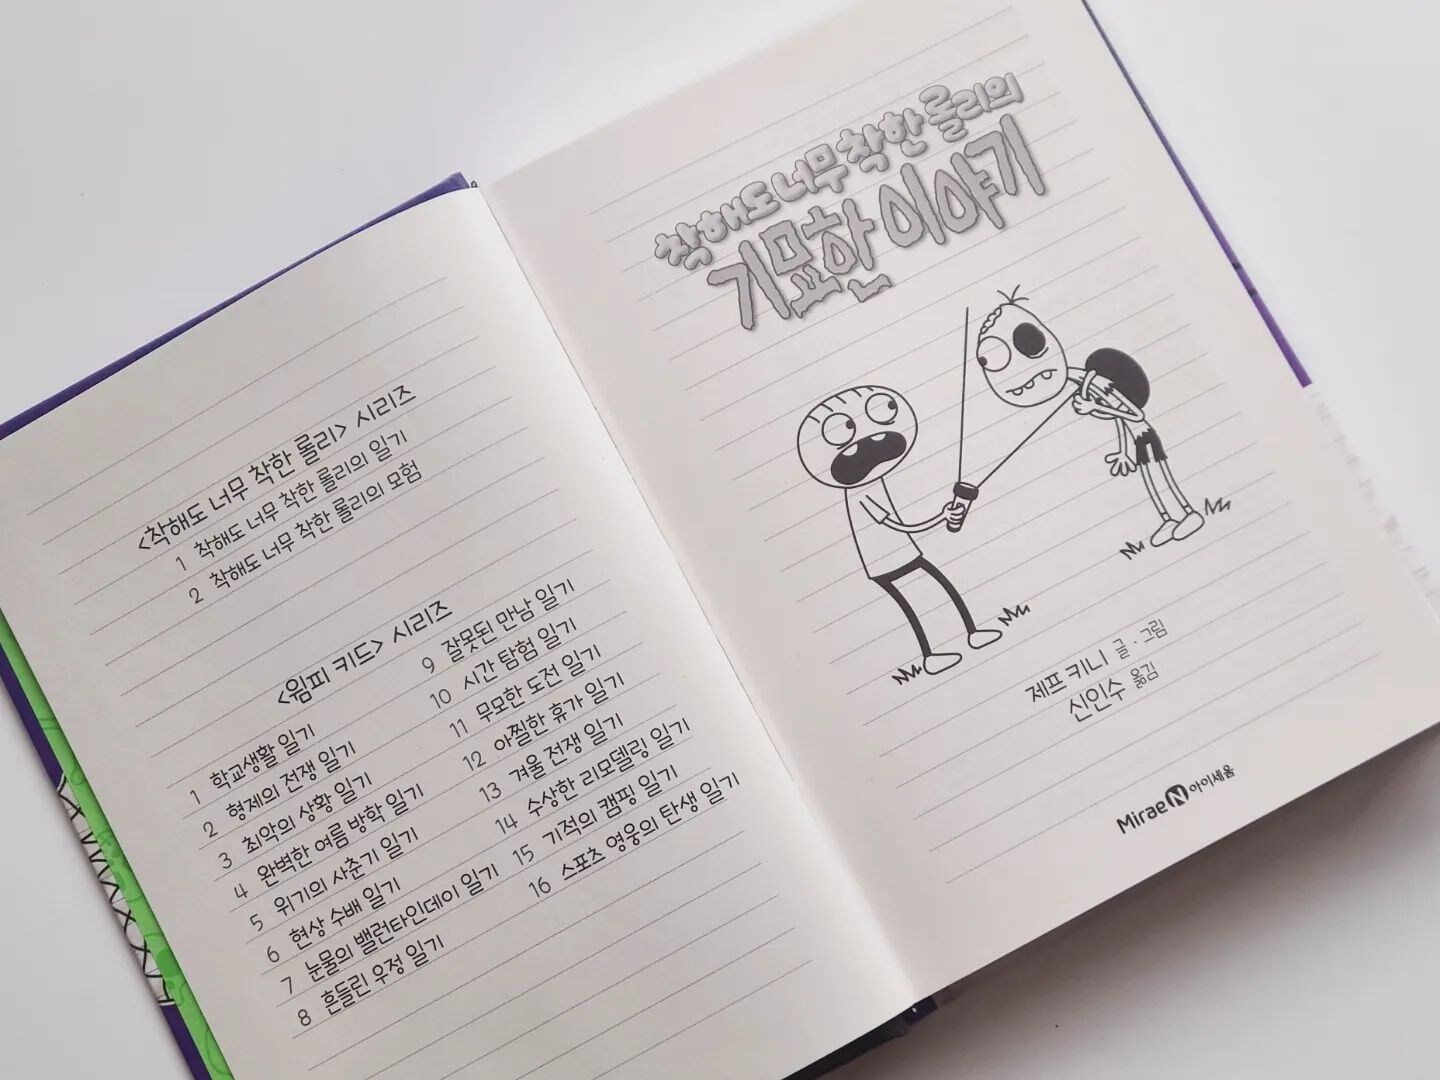 <착해도 너무 착한 롤리> 시리즈
1 착해도 너무 착한 롤리의 일기
2 착해도 너무 착한 롤리의 모험
<윔피 키드> 시리즈
1 학교생활 일기
2 형제의 전쟁 일기
3 최악의 상황 일기
4 완벽한 여름 방학 일기
5 위기의 사춘기 일기
6 현상 수배 일기
7 눈물의 밸런타인데이 일기
8 흔들린 우정 일기
9 잘못된 만남 일기
10 시간 탐험 일기
11 무모한 도전 일기
12 아찔한 휴가 일기
13 겨울 전쟁 일기
14 수상한 리모델링 일기
15 기적의 캠핑 일기
16 스포츠 영웅의 탄생 일기
착해도 너무 착한 롤리의
기묘한 이야기
제프 키니 글·그림
신인수 옮김
Mirae N 아이세움